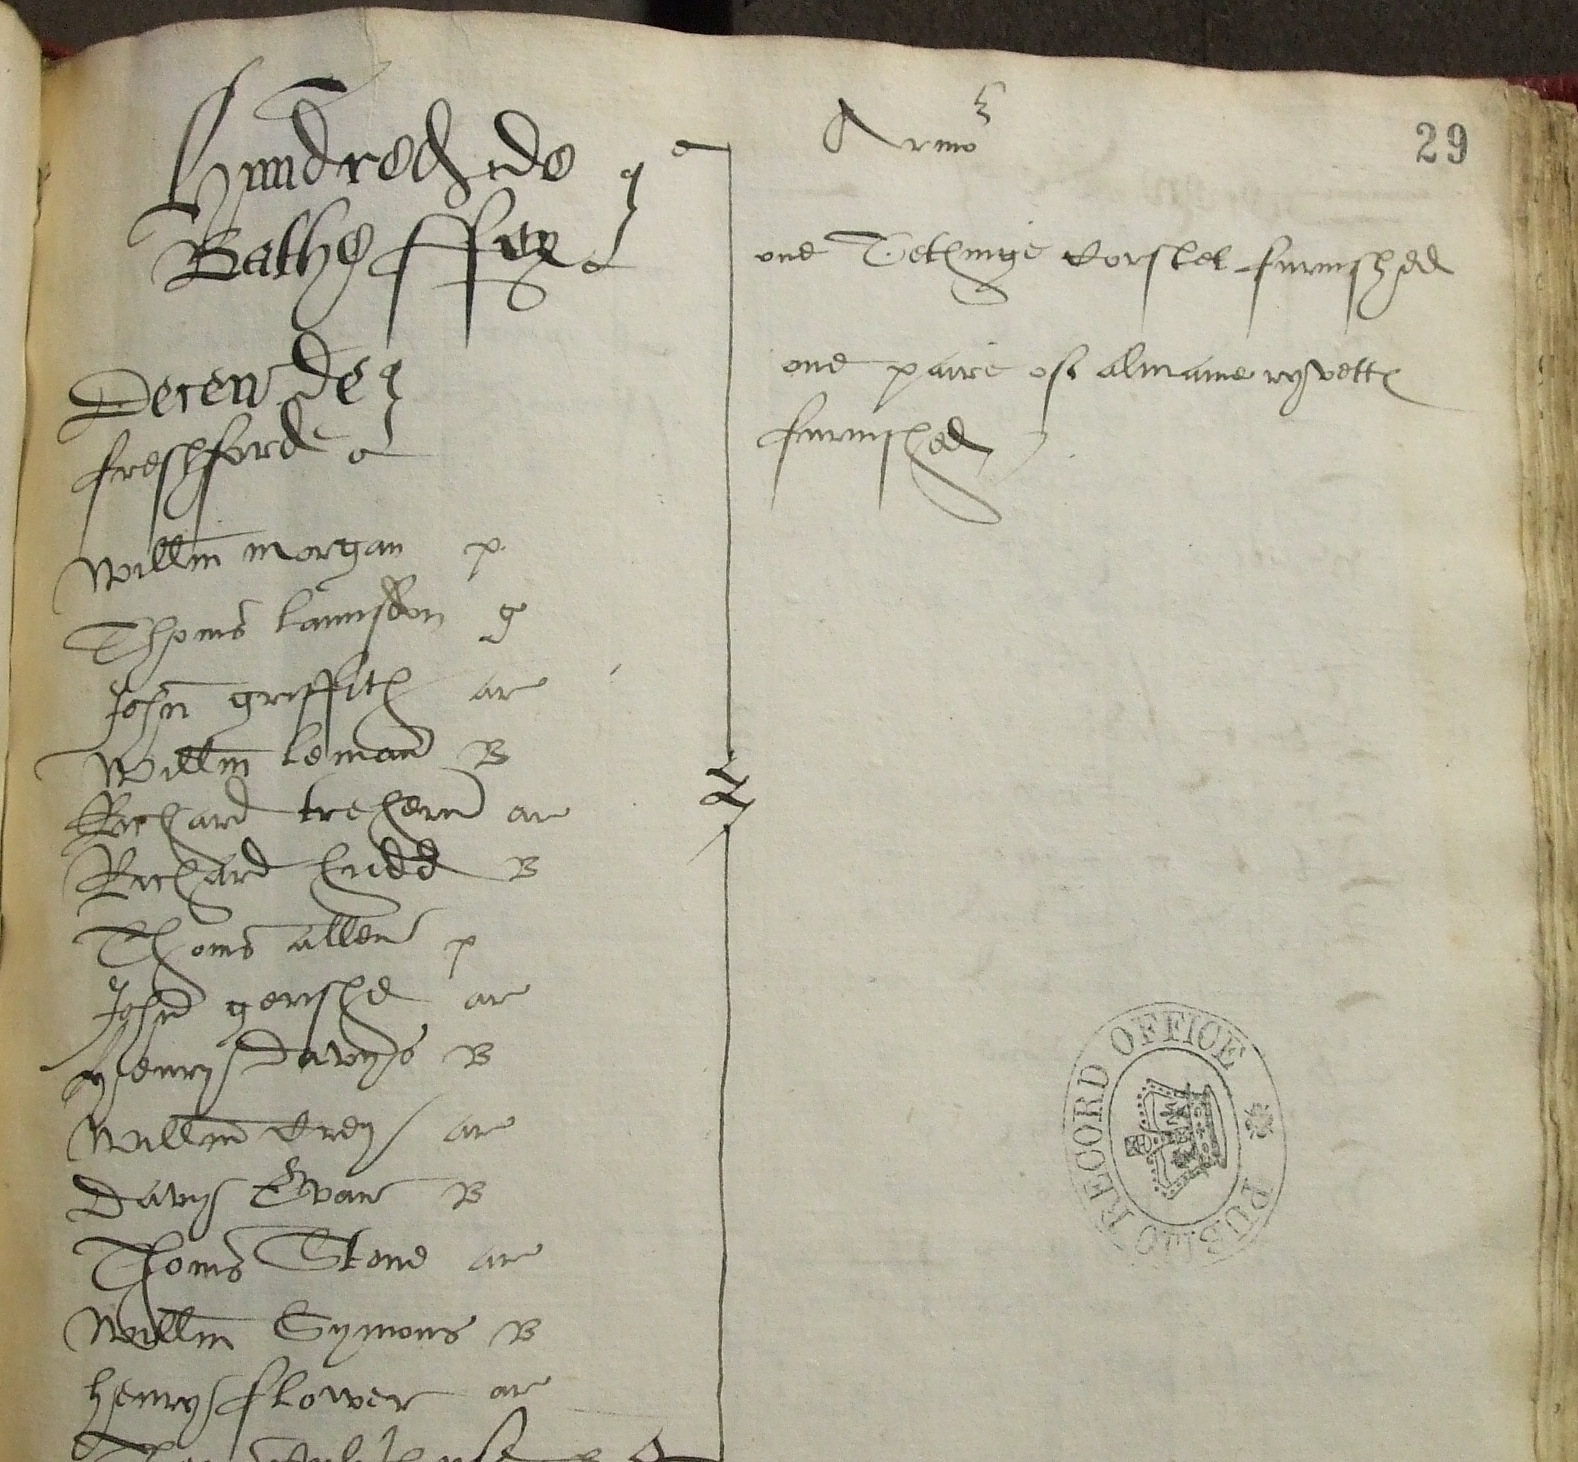 Hundred de
Bathe fforu
Decen de
freshford
Willm morgan p
Thoms Lannsdon g
John griffith ar
Willm Leman B
Richard trehern ar
Richard hudd B
Thoms allen p
John gerishe ar
Henry Davys B
Willm Grey ar
Davy Evan B
Thoms Stone ar
Willm Symons B
henry flower ar
Armor
29
one Tethinge corslet furnished
one paire of almaine ryvetts
furnished
PUBLIC RECORD OFFICE